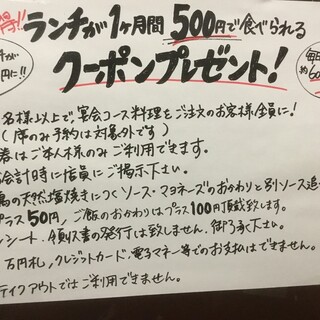 ランチが1ヶ月間500円で食べられる
クーポンプレゼント!
名様以上で、宴会コース料理をご注文のお客様全員に!
(席のみ予約は対象外です)
券はご本人様のみご利用できます。
会計時に店員にご掲示下さい。
鶏の天然塩焼きにつくソース・マヨネーズのおかわりと別ソース追
プラス50円、ご飯のおかわりはプラス100円頂戴致します。
シート、領収書の発行は致しません。御了承下さい。
万円札、クレジットカード、電子マネー等でのお支払はできません。
テイクアウトではご利用できません。